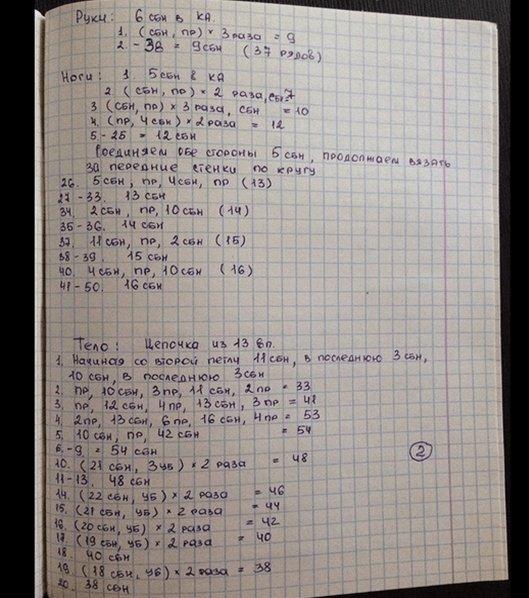 Руки: 6 сбн в КА.
1. (сбн, пр) × 3 раза = 9
2. - 38 = 9 сбн (37 рядов)
Ноги: 1. 5 сбн в КА
2 (сбн, пр) × 2 раза, сбн=7
3 (сбн, пр) × 3 раза, сбн = 10
4. (пр, 4 сбн) × 2 раза = 12
5. - 25 = 12 сбн
Соединяем обе стороны 5 сбн, продолжаем вязать
за передние стенки по кругу
26. 5 сбн, пр, 4 сбн, пр (13)
27 - 33. 13 сбн
34. 2 сбн, пр, 10 сбн (14)
35 - 36. 14 сбн
37. 11 сбн, пр, 2 сбн (15)
38 - 39. 15 сбн
40. 4 сбн, пр, 10 сбн (16)
41 - 50. 16 сбн
Тело: Цепочка из 13 вп.
1. Начиная со второй петли 11 сбн, в последнюю 3 сбн,
10 сбн, в последнюю 3 сбн
2. пр, 10 сбн, 3 пр, 11 сбн, 2 пр = 33
3. пр, 12 сбн, 4 пр, 13 сбн, 3 пр = 41
4. 2 пр, 13 сбн, 6 пр, 16 сбн, 4 пр = 53
5. 10 сбн, пр, 42 сбн = 54
6. - 9. = 54 сбн
10. (21 сбн, 3 уб) × 2 раза = 48
11 - 13. 48 сбн
14. (22 сбн, уб) × 2 раза = 46
15. (21 сбн, уб) × 2 раза = 44
16. (20 сбн, уб) × 2 раза = 42
17. (19 сбн, уб) × 2 раза = 40
18. 40 сбн
19. (18 сбн, уб) × 2 раза = 38
20. 38 сбн
2